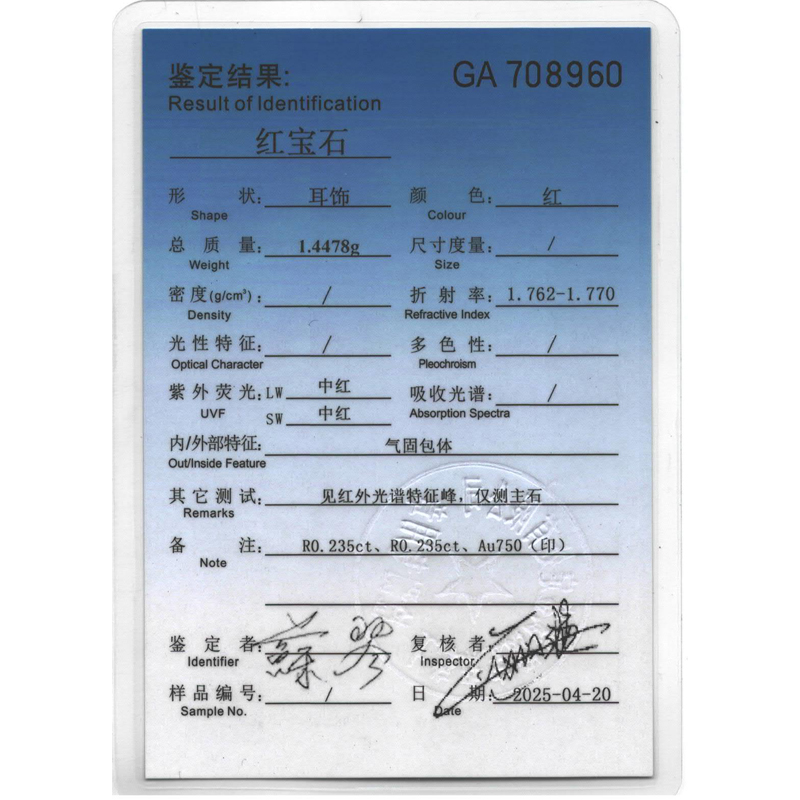 鉴定结果: GA 708960
Result of Identification
红宝石
形状: 耳饰 颜色: 红
Shape Colour
总质量: 1.4478g 尺寸度量: /
Weight Size
密度(g/cm³): / 折射率: 1.762-1.770
Density Refractive Index
光性特征: / 多色性: /
Optical Character Pleochroism
紫外荧光: LW 中红 吸收光谱: /
UVF SW 中红 Absorption Spectra
内/外部特征: 气固包体
Out/Inside Feature
其它测试: 见红外光谱特征峰，仅测主石
Remarks
备注: R0.235ct、R0.235ct、Au750（印）
Note
鉴定者: 蘇 复核者:
Identifier Inspector
样品编号: / 日期: 2025-04-20
Sample No. Date